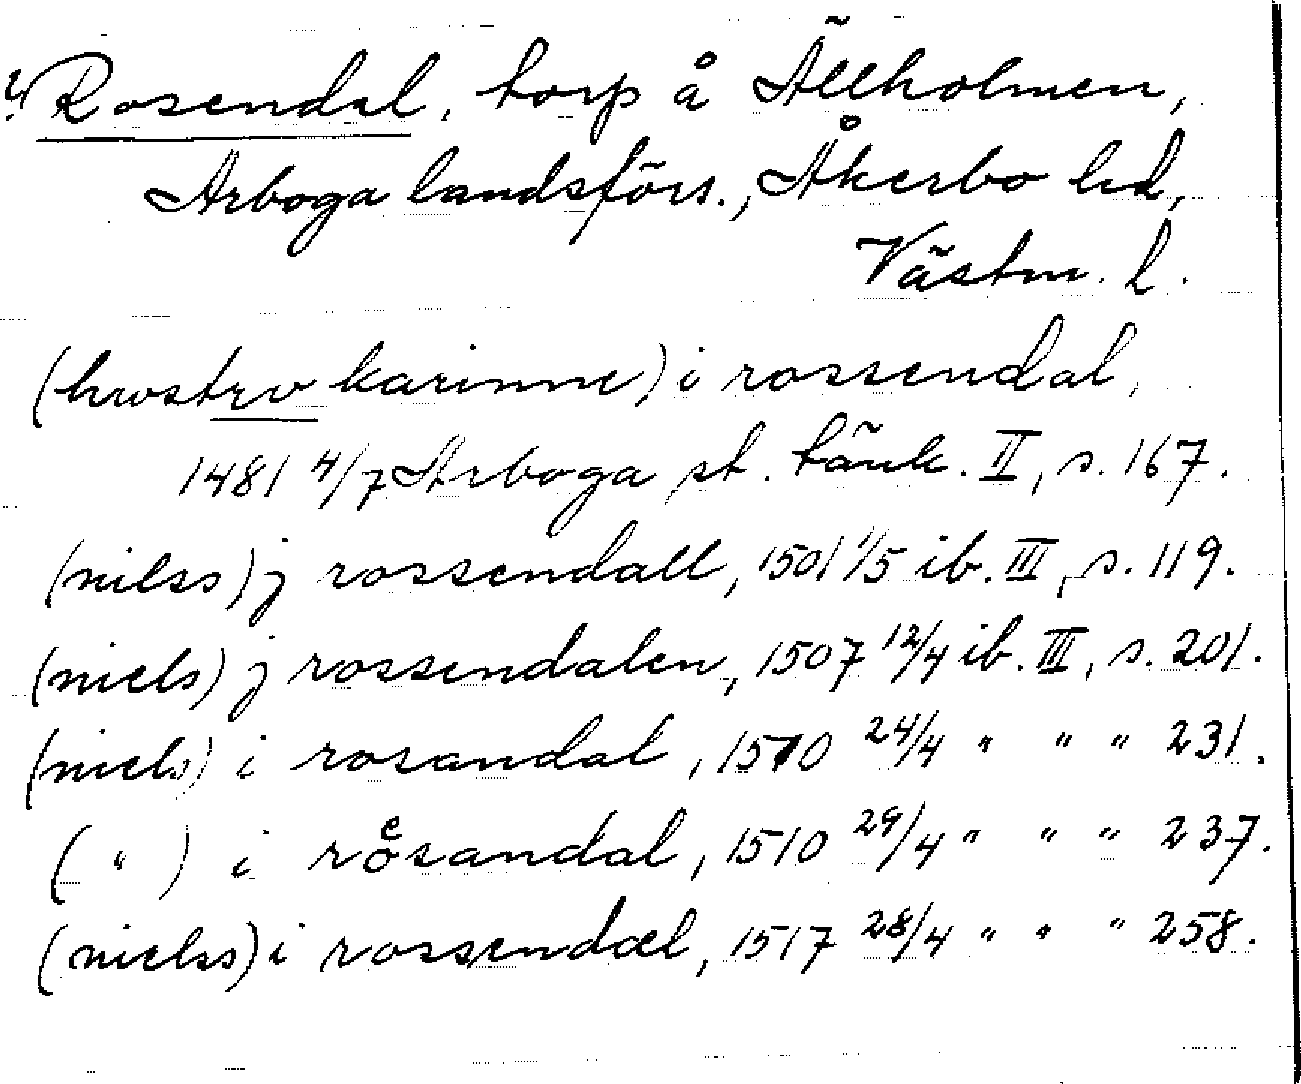 ? Rosendal, torp å Ällholmen,
Arboga landsförs., Åkerbo hd,
Västm. l.
(hwstrv karinne) i rossendal,
1481 4/7 Arboga st. tänk. II, s. 167.
(nilss) j rossendall, 1501 1/5 ib. III, s. 119.
(niels) j rossendalen, 1507 12/4 ib. III, s. 201.
(niels) i rosandal, 1510 24/4 " " " 231.
( " ) i roͤsandal, 1510 29/4 " " " 237.
(nielss) i rossendæl, 1517 28/4 " " " 258.